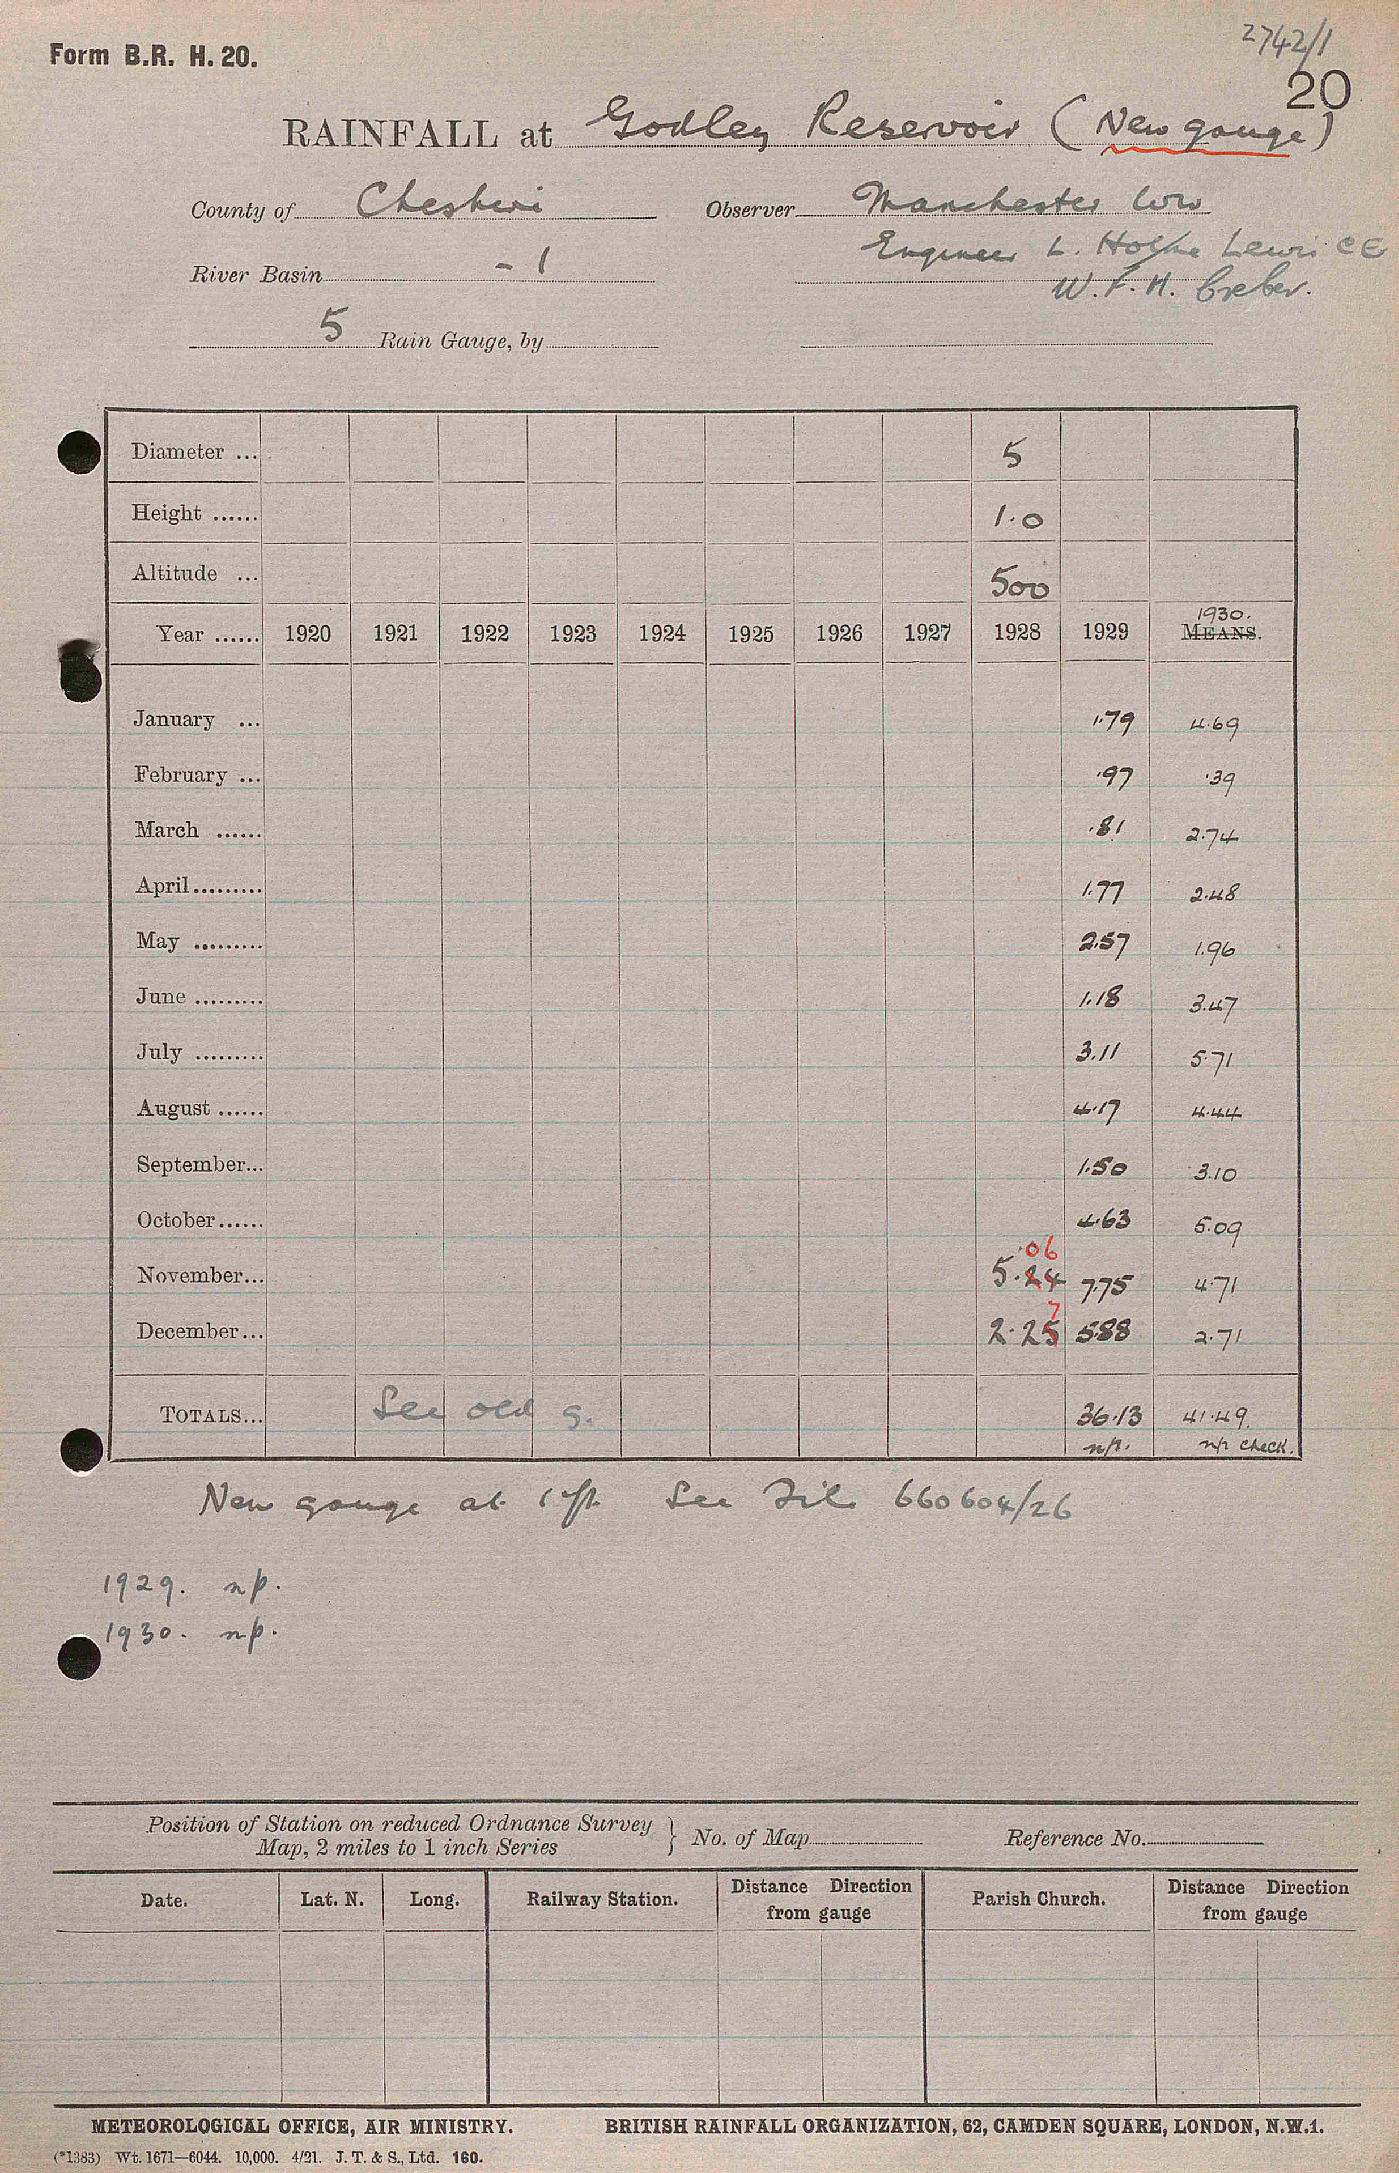 2742/1
Form B.R. H. 20.
20
RAINFALL at Godley Reservoir (New gauge)
County of Cheshire Observer Manchester
Engineer L. Holme Lewis CE
River Basin - 1
W. F. H. Creber.
5 Rain Gauge, by
Diameter ... 5
Height ...... 1.0
Altitude ... 500
1930.
Year ...... 1920 1921 1922 1923 1924 1925 1926 1927 1928 1929 MEANS.
January ... 1.79 4.69
February ... .97 .39
March ...... .81 2.74
April......... 1.77 2.48
May ......... 2.57 1.96
June ......... 1.18 3.47
July ......... 3.11 5.71
August ...... 4.17 4.44
September... 1.50 3.10
October...... 4.63 5.09
.06
November... 5.24 7.75 4.71
7
December... 2.25 5.88 2.71
TOTALS... See old g. 36.13 41.49
np. np check.
New gauge at 1 ft. See File 660604/26
1929. np.
1930. np.
Position of Station on reduced Ordnance Survey
Map, 2 miles to 1 inch Series } No. of Map Reference No.
Date. Lat. N. Long. Railway Station. Distance Direction from gauge Parish Church. Distance Direction from gauge
METEOROLOGICAL OFFICE, AIR MINISTRY. BRITISH RAINFALL ORGANIZATION, 62, CAMDEN SQUARE, LONDON, N.W.1.
(*1383) Wt. 1671—6044. 10,000. 4/21. J. T. & S., Ltd. 160.